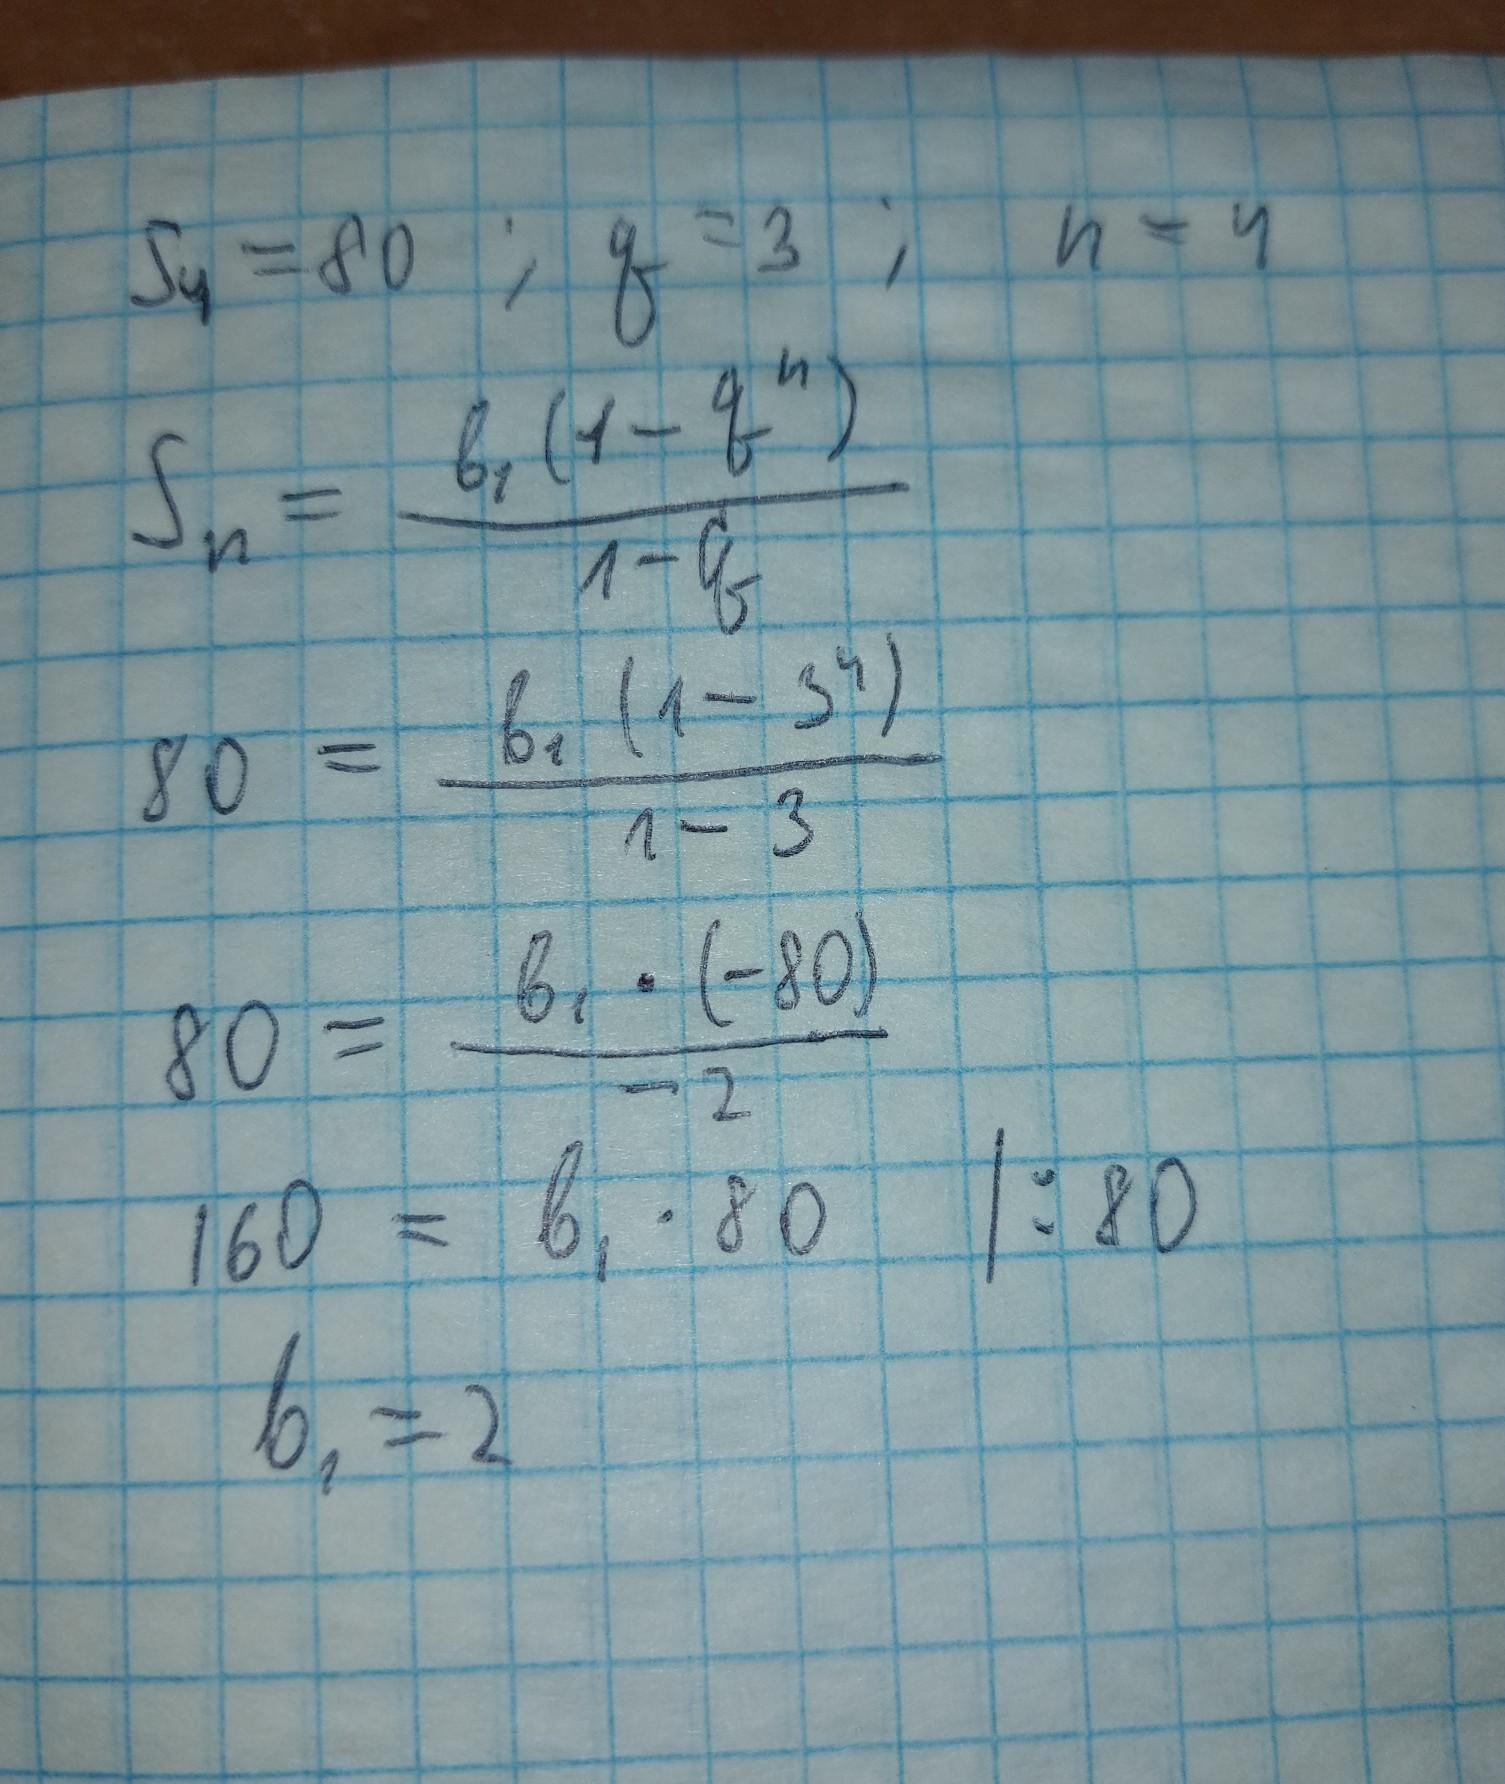 S₄ = 80 ; q = 3 ; n = 4
Sₙ = b₁(1 - qⁿ) / 1 - q
80 = b₁(1 - 3⁴) / 1 - 3
80 = b₁ · (-80) / -2
160 = b₁ · 80 | : 80
b₁ = 2